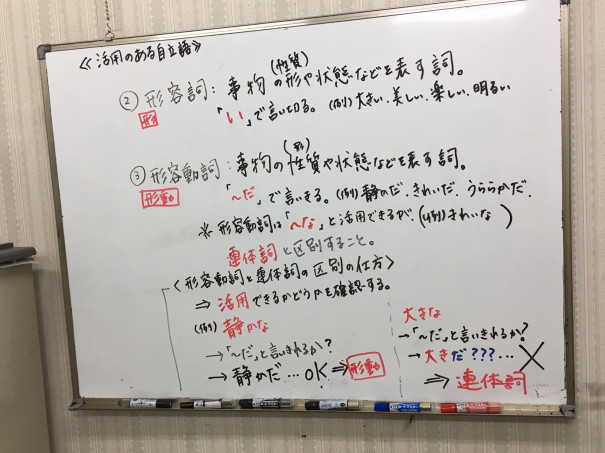 ≪活用のある自立語≫
(性質)
② 形容詞：事物の形や状態などを表す詞。
形 「い」で言い切る。(例)大きい、美しい、楽しい、明るい
(形)
③ 形容動詞：事物の性質や状態などを表す詞。
形動 「～だ」で言いきる。(例)静かだ、きれいだ、うららかだ、
※ 形容動詞は「～な」と活用できるが、(（例）きれいな )
連体詞と区別すること。
〈形容動詞と連体詞の区別の仕方〉
⇒ 活用できるかどうかを確認する。
(例) 静かな
→「～だ」と言いきれるか？
→ 静かだ…OK ⇒ 形動
大きな
→「～だ」と言いきれるか？
→ 大きだ???…×
⇒ 連体詞